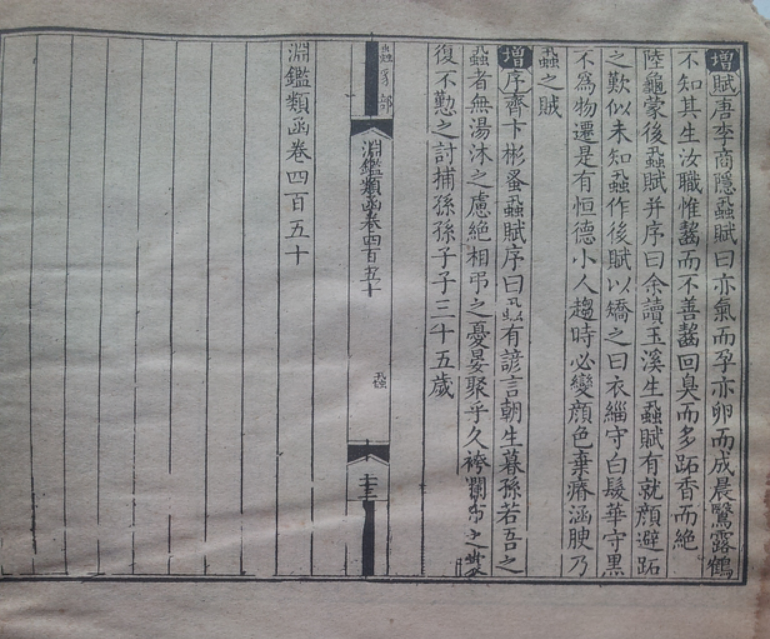 增賦唐李商隱蝨賦曰亦氣而孕亦卵而成晨鷖露鶴
不知其生汝職惟齧而不善齧回臭而多跖香而絶
陸龜蒙後蝨賦并序曰余讀玉溪生蝨賦有就顔避跖
之歎似未知蝨作後賦以矯之曰衣緇守白髮華守黑
不爲物遷是有恒德小人趨時必變顔色棄瘠涵腴乃
蝨之賊
增序齊卞彬蚤蝨賦序曰蝨有諺言朝生暮孫若吾之
蝨者無湯沐之慮絶相弔之憂晏聚乎久袴爛布之
復不懃之討捕孫孫子子三十五歲
蟲豸部
淵鑑類函卷四百五十
蝨
淵鑑類函卷四百五十